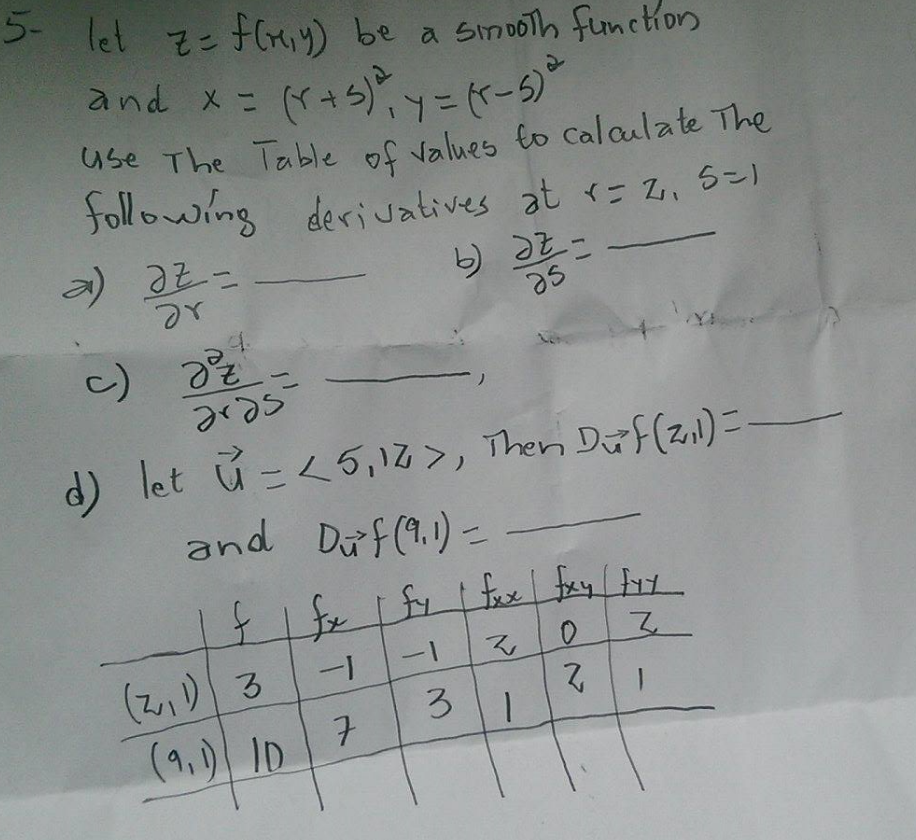 5- let z = f(x,y) be a smooth function
and x = (r+s)², y = (r-s)²
use The Table of values to calculate The
following derivatives at r = 2, s=1
a) ∂z/∂r = ____ b) ∂z/∂s = ____
c) ∂²z/∂r∂s = ____,
d) let u⃗ = <5,12>, Then Du⃗f(2,1) = ____
and Du⃗f(9,1) = ____
f fx fy fxx fxy fyy
(2,1) 3 -1 -1 2 0 2
(9,1) 10 7 3 1 2 1